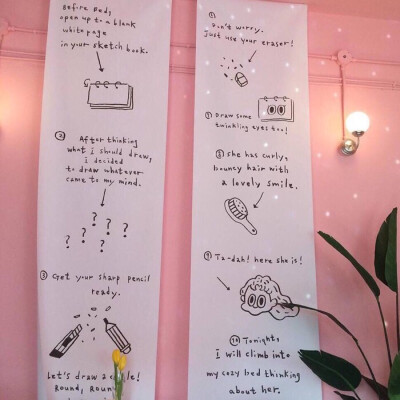 Before Bed,
open up to a blank
white page
in your sketch book.
② After thinking
what I should draw,
I decided
to draw whatever
came to my mind.
? ? ? ? ? ?
③ Get your sharp pencil
ready.
Let's draw a
Round,
Don't worry.
Just use your eraser!
Draw some
twinkling eyes too!
⑧ she has curly,
bouncy hair with
a lovely smile.
⑨ Ta-dah! here she is!
⑩ Tonight,
I will climb into
my cozy bed thinking
about her.